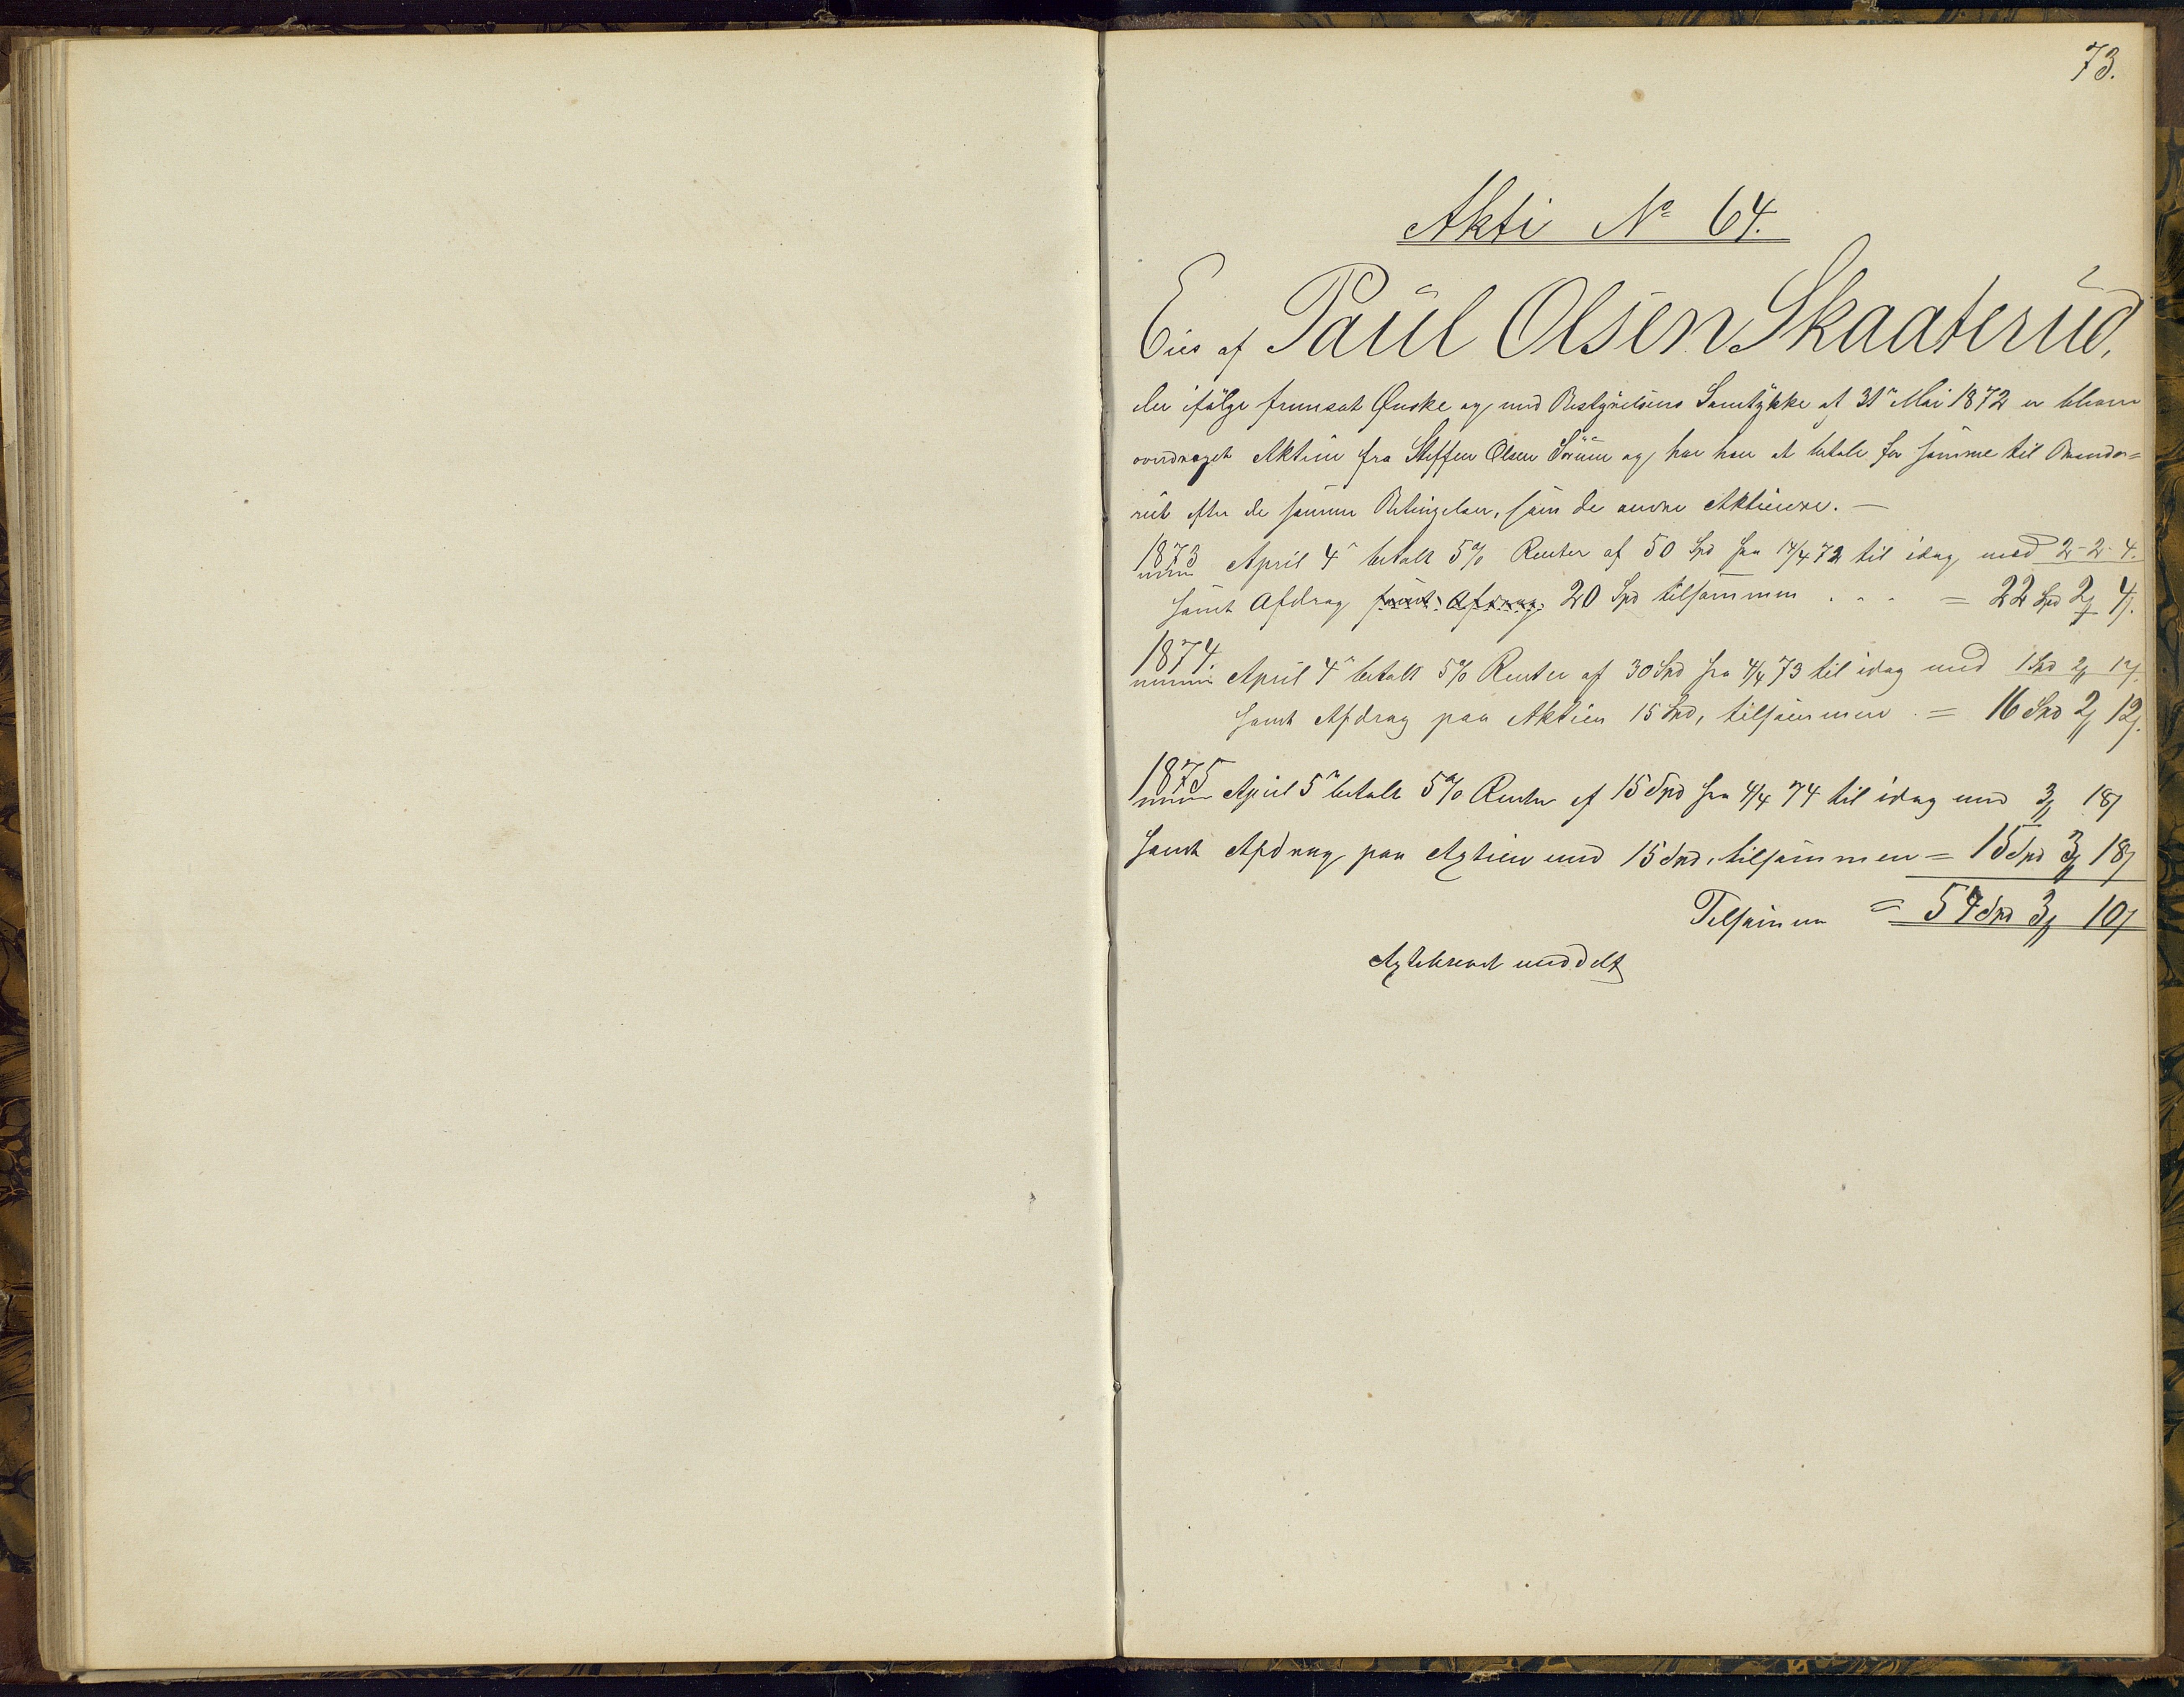 73.
Akti No 64.
Eies af Paul Olsen Skaaterud,
der ifølge fremsat Ønske og med Bestyrelsens Samtykke af 31te Mai 1872 er bleven
overdraget Aktien fra Steffen Olsen Sorum og har han at betale for samme til Brænde=
riet efter de samme Betingelser, som de andre Aktieiere. —
1873 April 4de betalt 5% Renter af 50 Spd fra 14/4 72 til idag med 2-2-4.
samt Afdrag samt Afdrag 20 Spd tilsammen . . . = 22 Spd 2 4.
1874. April 4de betalt 5% Renter af 30 Spd fra 4/4 73 til idag med 1 Spd 2 12.
samt Afdrag paa Aktien 15 Spd, tilsammen = 16 Spd 2 12.
1875 April 5te betalt 5% Renter af 15 Spd fra 4/4 74 til idag med 3 18
samt Afdrag paa Aktien med 15 Spd, tilsammen = 15 Spd 3 18
Tilsammen = 54 Spd 3 10
Aktiebrevet meddelt